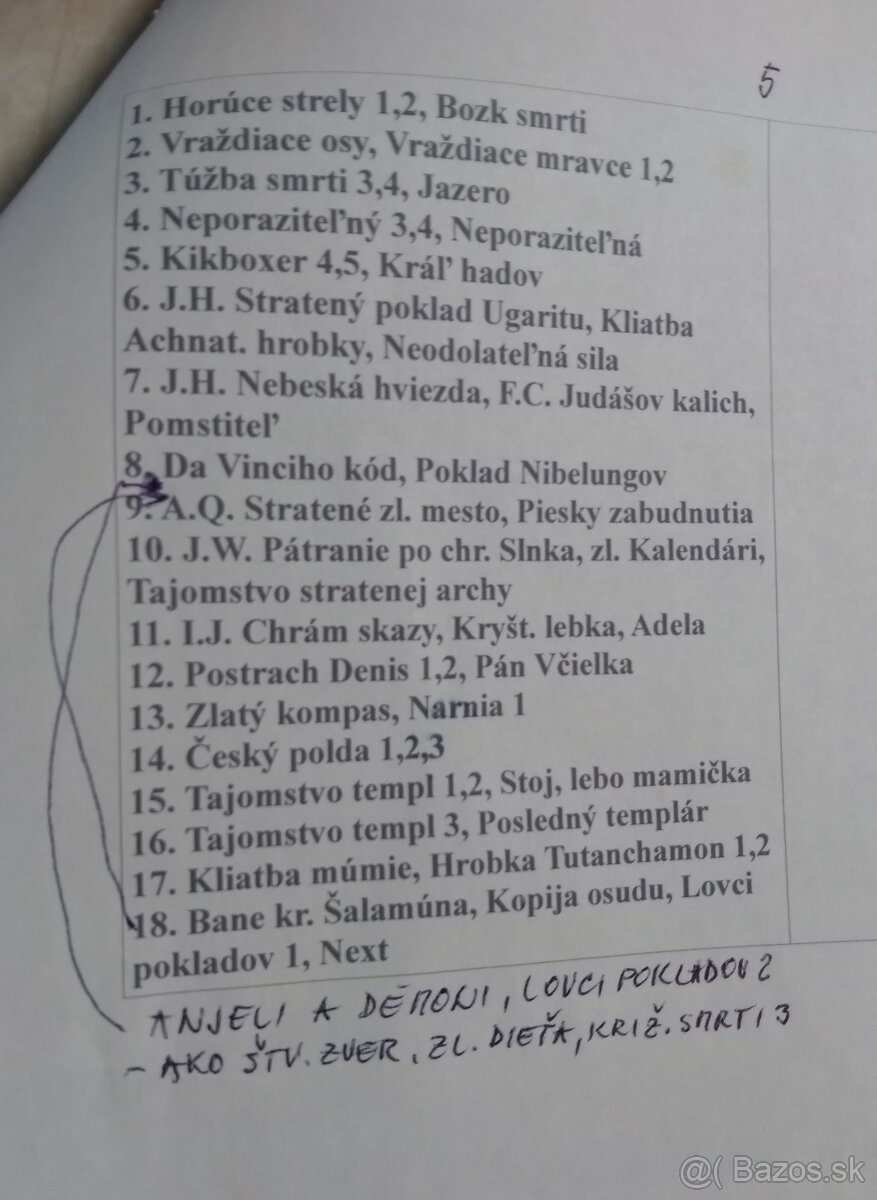 5
1. Horúce strely 1,2, Bozk smrti
2. Vraždiace osy, Vraždiace mravce 1,2
3. Túžba smrti 3,4, Jazero
4. Neporaziteľný 3,4, Neporaziteľná
5. Kikboxer 4,5, Kráľ hadov
6. J.H. Stratený poklad Ugaritu, Kliatba
Achnat. hrobky, Neodolateľná sila
7. J.H. Nebeská hviezda, F.C. Judášov kalich,
Pomstiteľ
8. Da Vinciho kód, Poklad Nibelungov
9. A.Q. Stratené zl. mesto, Piesky zabudnutia
10. J.W. Pátranie po chr. Slnka, zl. Kalendári,
Tajomstvo stratenej archy
11. I.J. Chrám skazy, Kryšt. lebka, Adela
12. Postrach Denis 1,2, Pán Včielka
13. Zlatý kompas, Narnia 1
14. Český polda 1,2,3
15. Tajomstvo templ 1,2, Stoj, lebo mamička
16. Tajomstvo templ 3, Posledný templár
17. Kliatba múmie, Hrobka Tutanchamon 1,2
18. Bane kr. Šalamúna, Kopija osudu, Lovci
pokladov 1, Next
ANJELI A DÉMONI, LOVCI POKLADOV 2
- AKO ŠTV. ZVER, ZL. DIEŤA, KRIŽ. SMRTI 3
@( Bazos.sk